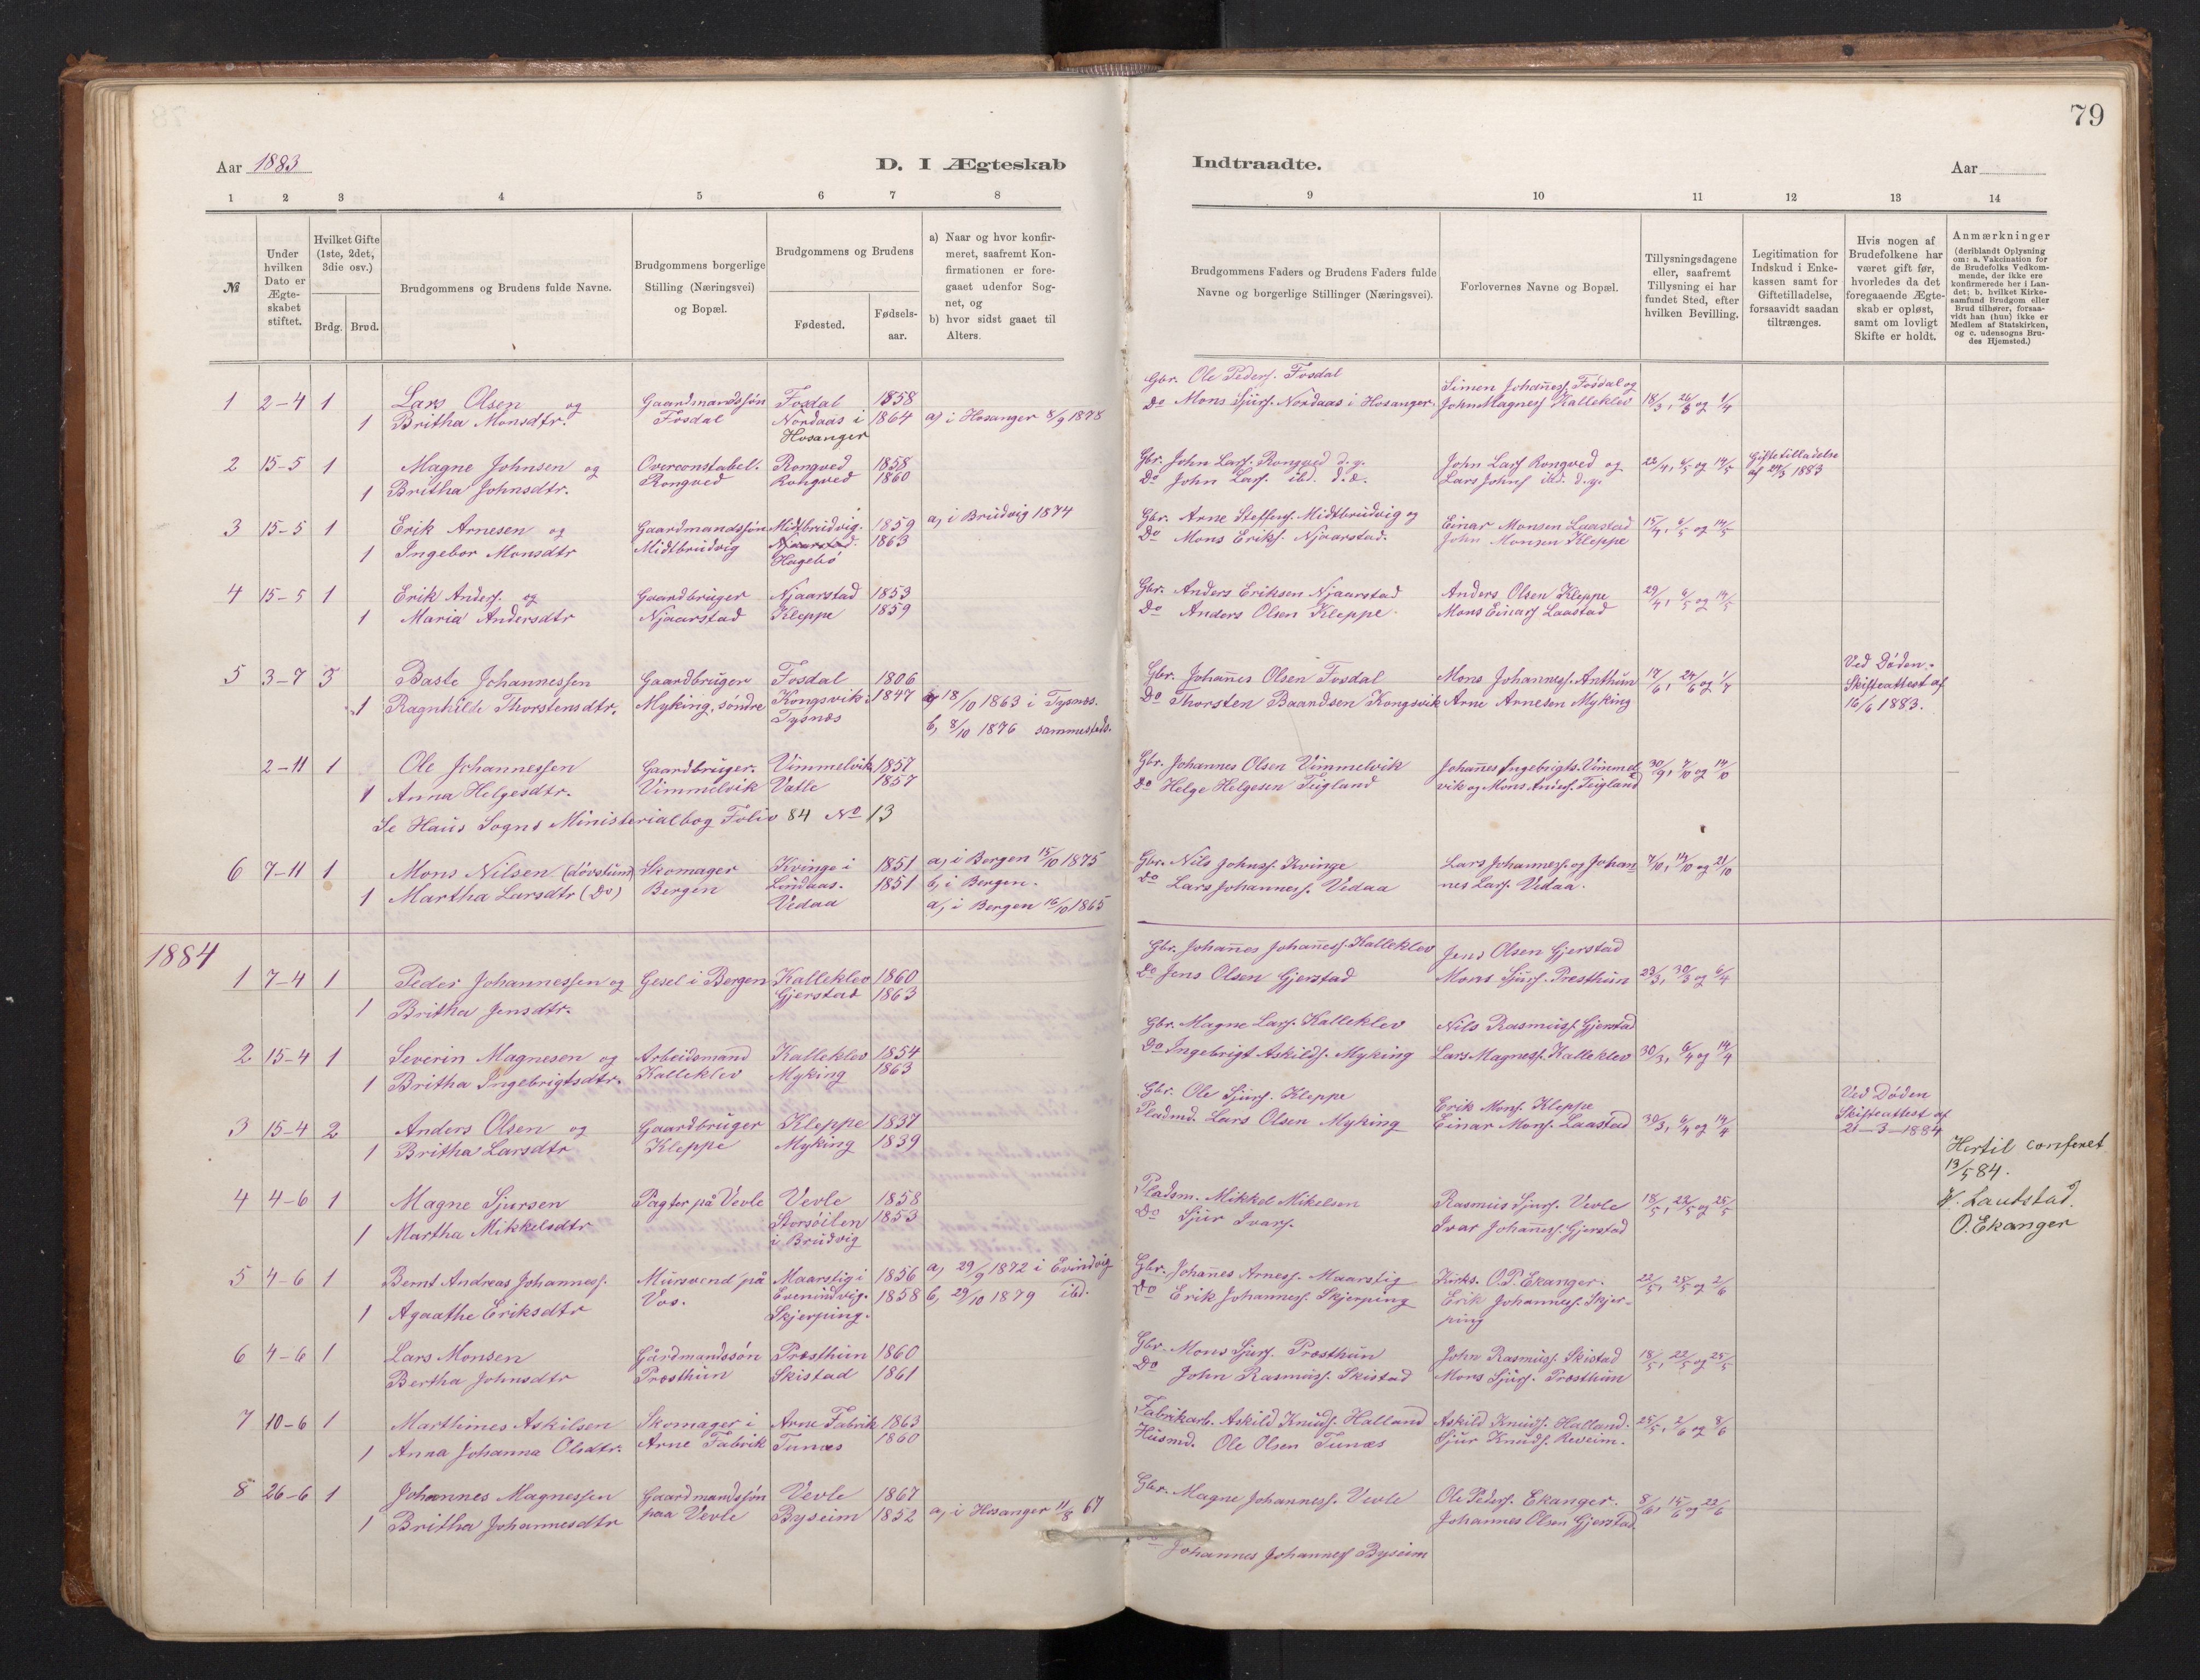 79
Aar 1883
D. I Ægteskab
Indtraadte.
Aar
1 2 3 4 5 6 7 8 9 10 11 12 13 14
№
Under hvilken Dato er Ægteskabet stiftet.
Hvilket Gifte (1ste, 2det, 3die osv.)
Brdg. Brud.
Brudgommens og Brudens fulde Navne.
Brudgommens borgerlige Stilling (Næringsvei) og Bopæl.
Brudgommens og Brudens
Fødested.
Fødsels-aar.
a) Naar og hvor konfir-
meret, saafremt Kon-
firmationen er fore-
gaaet udenfor Sog-
net, og
b) hvor sidst gaaet til
Alters.
Brudgommens Faders og Brudens Faders fulde
Navne og borgerlige Stillinger (Næringsvei).
Forlovernes Navne og Bopæl.
Tillysningsdagene
eller, saafremt
Tillysning ei har
fundet Sted, efter
hvilken Bevilling.
Legitimation for
Indskud i Enke-
kassen samt for
Giftetilladelse,
forsaavidt saadan
tiltrænges.
Hvis nogen af
Brudefolkene har
været gift før,
hvorledes da det
foregaaende Ægte-
skab er opløst,
samt om lovligt
Skifte er holdt.
Anmærkninger
(deriblandt Oplysning
om: a. Vakcination for
de Brudefolks Vedkom-
mende, der ikke ere
konfirmerede her i Lan-
det; b. hvilket Kirke-
samfund Brudgom eller
Brud tilhører, forsaa-
vidt han (hun) ikke er
Medlem af Statskirken,
og c. udensogns Bru-
des Hjemsted.)
1 2-4 1 Lars Olsen og Gaardmandssøn Fosdal 1858
1 Britha Monsdtr. Fosdal Nordaas i 1864 a) i Hosanger 8/9 1878
Hosanger
Gbr. Ole Peders. Fosdal
Do Mons Sjurs. Nordaas i Hosanger.
Simen Johaness. Fosdal og
John Magness Kalleklev 18/3, 26/3 og 1/4
2 15-5 1 Magne Johnsen og Overconstabel. Rongved 1858
1 Britha Johnsdtr. Rongved Rongved 1860
Gbr. John Lars. Rongved d.y.
Do John Lars. ibd. d.e.
John Lars Rongved og
Lars Johns ibd. d.y.
22/4, 6/5 og 14/5
Giftetilladelse
af 29/3 1883
3 15-5 1 Erik Arnesen og Gaardmandssøn Midtbrudvig. 1859 a, i Brudvig 1874
1 Ingebor Monsdtr Midtbrudvig Njaarstad. 1863
Hagebø
Gbr. Arne Steffens. Midtbrudvig og
Do Mons Eriks. Njaarstad.
Einar Monsen Laastad
John Monsen Kleppe
15/4, 6/5 og 14/5
4 15-5 1 Erik Anders. og Gaardbruger Njaarstad 1853
1 Maria Andersdtr Njaarstad Kleppe 1859
Gbr. Anders Eriksen Njaarstad
Do Anders Olsen Kleppe.
Anders Olsen Kleppe
Mons Einars Laastad
29/4, 6/5 og 14/5
5 3-7 3 Baste Johannessen Gaardbruger Fosdal 1806
1 Ragnhilde Thorstensdtr. Myking, søndre Kongsvik i 1847 a, 18/10 1863 i Tysnæs.
Tysnæs b, 8/10 1876 sammesteds.
Gbr. Johanes Olsen Fosdal
Do Thorsten Baardsen Kongsvik
Mons Johanness. Anthun
Arne Arnesen Myking
17/6, 24/6 og 1/7
Ved Døden.
Skifteattest af
16/6 1883.
2-11 1 Ole Johannessen Gaardbruger. Vimmelvik 1857
1 Anna Helgesdtr. Vimmelvik Vatle 1857
Se Haus Sogns Ministerialbog Folio 84 No 13
Gbr. Johannes Olsen Vimmelvik
Do Helge Helgesen Teigland
Johanes Ingebrigts. Vimmel
vik og Mons Anders. Teigland
30/9, 7/10 og 14/10
6 7-11 1 Mons Nilsen (døvstum) Skomager Kvinge i 1851 a, i Bergen 15/10 1875
1 Martha Larsdtr (Do) Bergen Lindaas. 1851 b, i Bergen.
Vedaa a, i Bergen 16/10 1865
Gbr. Nils Johnss. Kvinge
Do Lars Johanness. Vedaa
Lars Johanness. og Johan
nes Lars. Vedaa.
7/10, 14/10 og 21/10
1884
1 7-4 1 Peder Johannessen og Gesel i Bergen Kalleklev 1860
1 Britha Jensdtr. Gjerstad 1863
Gbr. Johanes Johaness. Kalleklev
Do Jens Olsen Gjerstad
Jens Olsen Gjerstad
Mons Sjurs. Presthun
23/3, 30/3 og 6/4
2 15-4 1 Severin Magnesen og Arbeidsmand Kalleklev 1854
1 Britha Ingebrigtsdtr. Kalleklev Myking 1863
Gbr. Magne Lars. Kalleklev
Do Ingebrigt Askilds. Myking
Nils Rasmuss. Gjerstad
Lars Magness. Kalleklev
30/3, 6/4 og 14/4
3 15-4 2 Anders Olsen og Gaardbruger Kleppe 1837
1 Britha Larsdtr Kleppe Myking 1839
Gbr. Ole Sjurs. Kleppe
Pladsmd. Lars Olsen Myking
Erik Mons. Kleppe
Einar Mons. Laastad
30/3, 6/4 og 14/4
Ved Døden
Skifteattest af
21-3-1884
Hertil conferet
13/5 84.
O. Ekanger
4 4-6 1 Magne Sjursen Pagter på Vevle Vevle 1858
1 Martha Mikkelsdtr Storsøilen 1853
i Brudvig
Pladsm. Mikkel Mikelsen
Do Sjur Ivars.
Rasmus Sjurs. Vevle
Ivar Johaness. Gjerstad
18/5, 22/5 og 25/5
5 4-6 1 Bernt Andreas Johanness. Mursvend på Maarstig i 1856 a, 29/9 1872 i Evindvig
1 Agaathe Eriksdtr Vos. Evenindvig. 1858 b, 29/10 1879 ibd.
Skjerping.
Gbr. Johanes Arness. Maarstig
Do Erik Johanness. Skjerping
Kirks. O.P. Ekanger.
Erik Johanness. Skjer-
ping
22/5, 25/5 og 2/6
6 4-6 1 Lars Monsen Gårdmandssøn Præsthun 1860
Bertha Johnsdtr Præsthun Skistad 1861
Gbr. Mons Sjurs. Præsthun
Do John Rasmuss. Skistad
John Rasmuss. Skistad
Mons Sjurs. Præsthun
18/5, 22/5 og 25/5
7 10-6 1 Marthines Askilsen Skomager i Arne Fabrik 1863
1 Anna Johanna Olsdtr. Arne Fabrik Tunæs 1860
Fabrikarb. Askild Knuds. Halland
Husmd. Ole Olsen Tunæs
Askild Knuds. Halland.
Sjur Knuds. Reveim.
25/5, 2/6 og 8/6
8 26-6 1 Johannes Magnessen Gaardmandssøn Vevle 1867
1 Britha Johannesdtr paa Vevle Byseim 1852 a, i Hosanger 11/8 67
Gbr. Magne Johanness. Vevle
Do Johannes Johaness Byseim
Ole Peders. Ekanger.
Johannes Olsen Gjerstad
8/6, 15/6 og 22/6